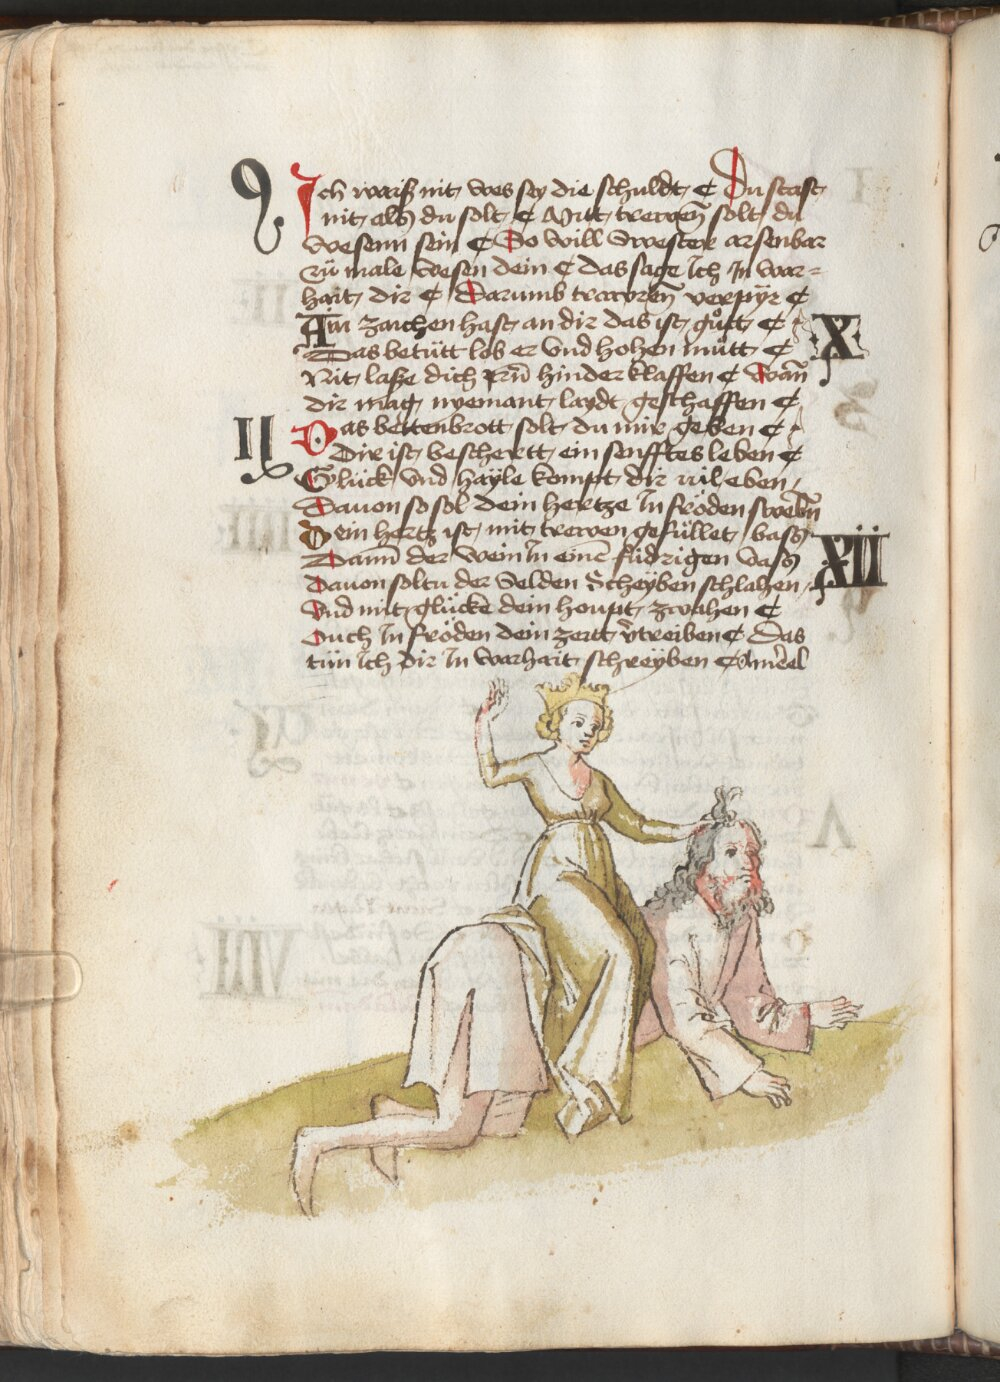 9
Ich waiß nit wes sey die schuldt ¢ Du stast
nit als du solt ¢ Mitt trewen solt du
wesenn sein ¢ So will Swester arsenbar
zů male wesen dein ¢ das sage Ich In war=
hait dir ¢ Darumb traworen verpir ¢
Ain zaichen hast an dir das ist gůtt ¢ X
Das betütt lob er vnd hohen můtt ¢
Nit laße dich hinder klaffen ¢ wan
dir mag nyemant laydt geschaffen ¢
II Das bettenbrott solt du mir geben ¢
Dir ist beschertt ein senfftes leben ¢
Glück vnd hayle kompt dir vil eben
Dauon so sol dein hertze In fröden swebñ
Dein hertz ist mit trewen gefüllet bass XII
Dann der wein In eine fůdrigen vass
Dauon soltu der Selden scheyben schlahen
Vnd mit glücke dein houpt zwahen ¢
Ouch In fröden dein zeytt vtreiben ¢ Das
tůn Ich dir In warhait schreyben ¢